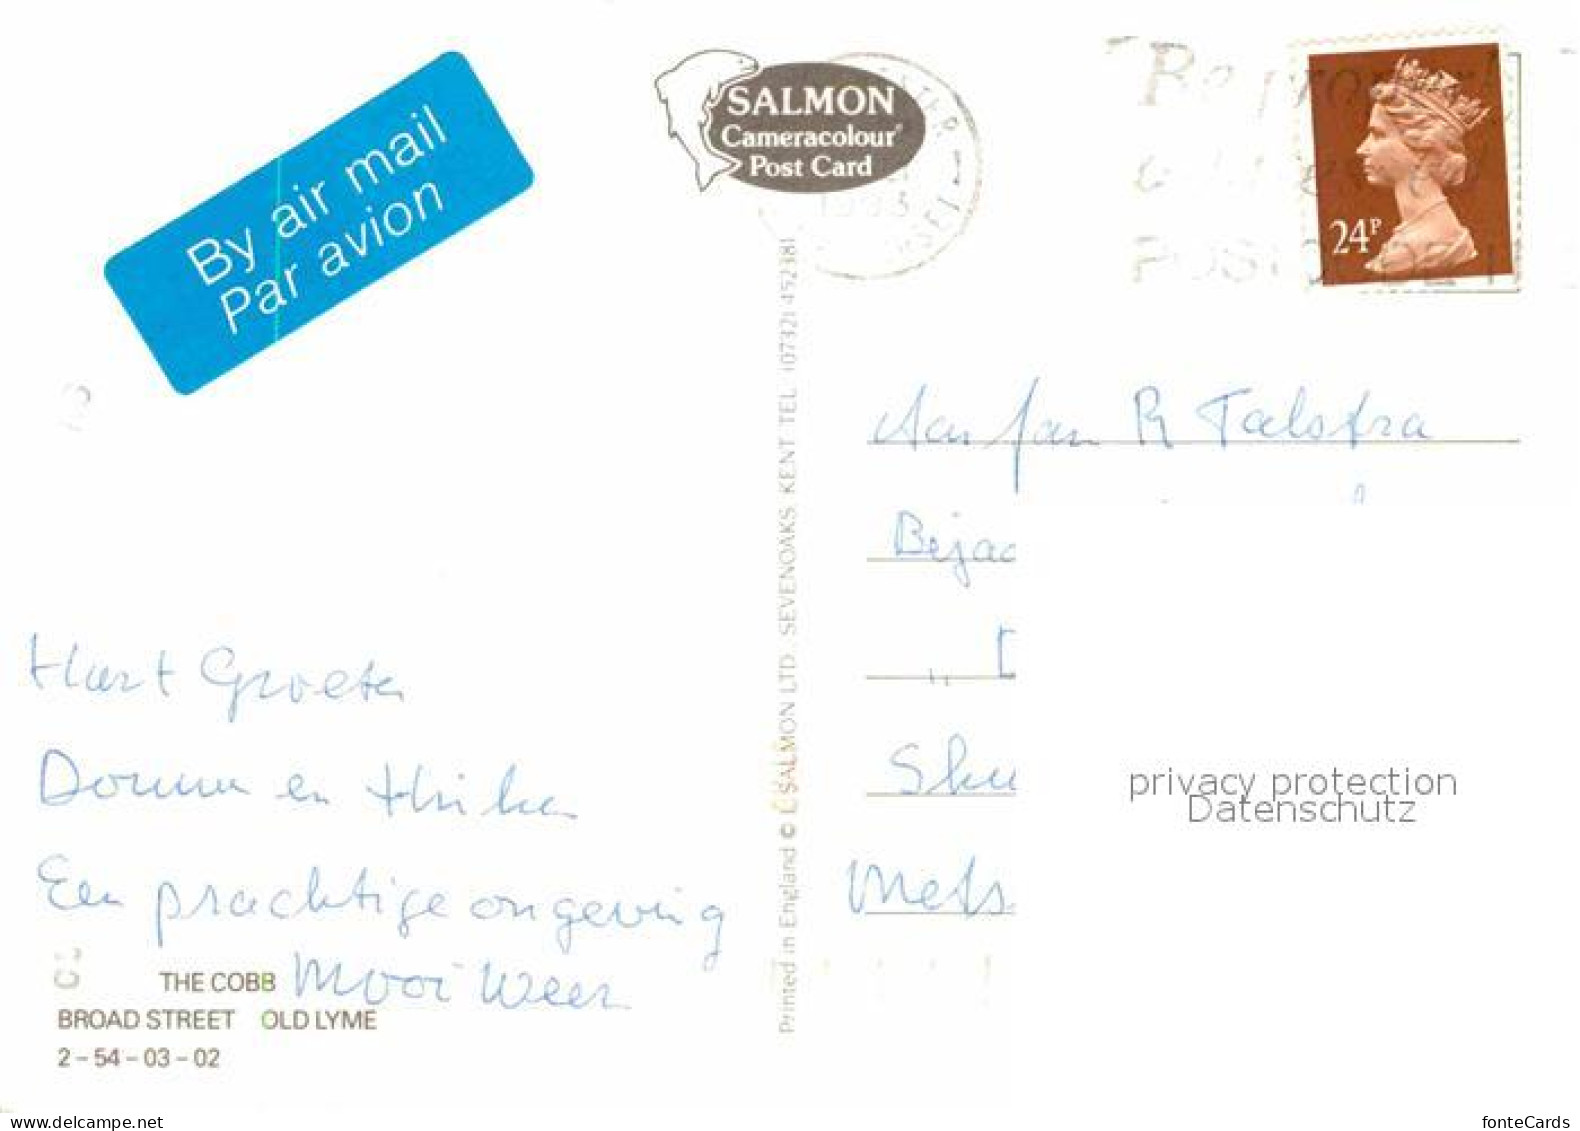 By air mail
Par avion
SALMON
Cameracolour®
Post Card
24P
Aan Jan R Talstra
Bejac
Sku
Mets
privacy protection
Datenschutz
Hart Groeten
en
Een prachtige omgeving
Mooi Weer
THE COBB
BROAD STREET OLD LYME
2-54-03-02
Printed in England © J. SALMON LTD., SEVENOAKS KENT TEL (0732) 452381
www.delcampe.net
fonteCards